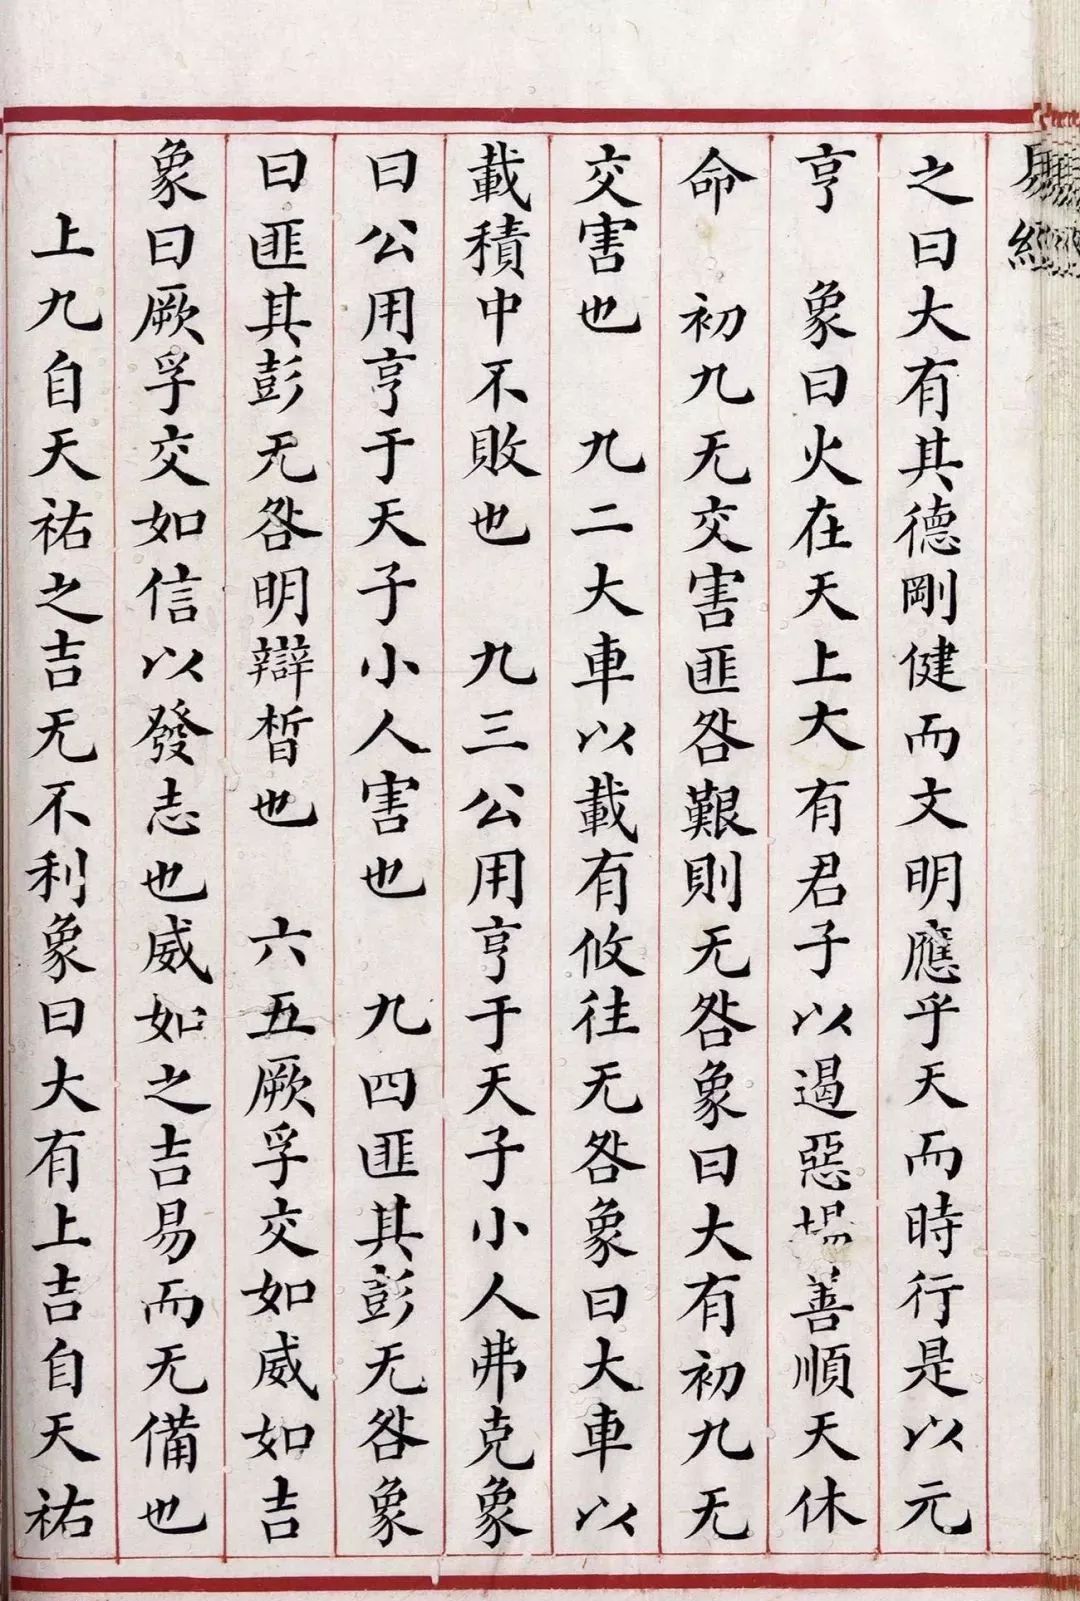 之曰大有其德剛健而文明應乎天而時行是以元
亨 象曰火在天上大有君子以遏惡揚善順天休
命 初九无交害匪咎艱則无咎象曰大有初九无
交害也 九二大車以載有攸往无咎象曰大車以
載積中不敗也 九三公用亨于天子小人弗克象
曰公用亨于天子小人害也 九四匪其彭无咎象
曰匪其彭无咎明辯晳也 六五厥孚交如威如吉
象曰厥孚交如信以發志也威如之吉易而无備也
上九自天祐之吉无不利象曰大有上吉自天祐